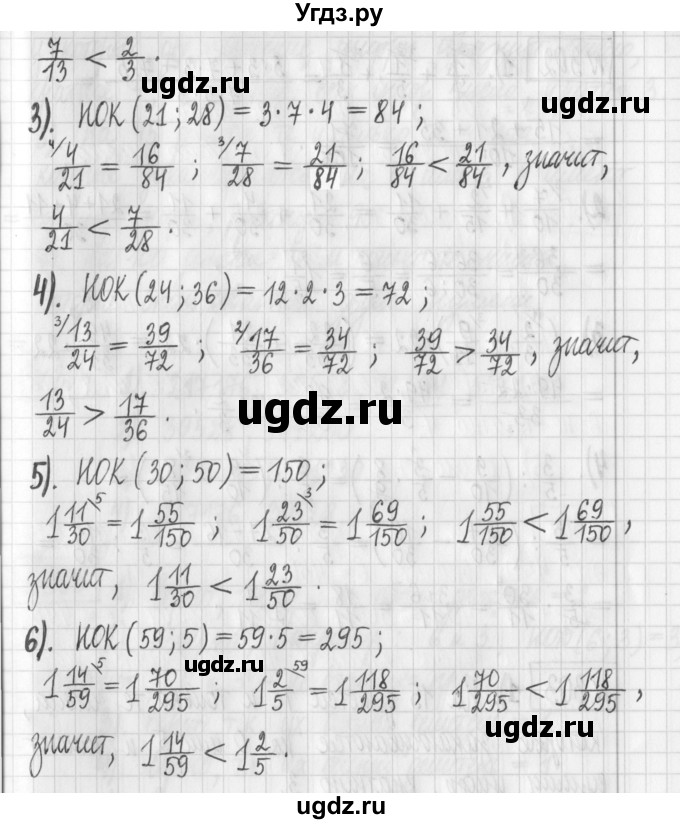 Угдз.ру
7/13 < 2/3 .
ugdz.ru
3). НОК (21; 28) = 3·7·4 = 84 ;
4/ 4/21 = 16/84 ; 3/ 7/28 = 21/84 ; 16/84 < 21/84 , значит,
4/21 < 7/28 .
4). НОК (24; 36) = 12·2·3 = 72 ;
3/ 13/24 = 39/72 ; 2/ 17/36 = 34/72 ; 39/72 > 34/72 ; значит,
13/24 > 17/36 .
ugdz.ru ugdz.ru
5). НОК (30; 50) = 150 ;
1 11/30 \5 = 1 55/150 ; 1 23/50 \3 = 1 69/150 ; 1 55/150 < 1 69/150 ,
значит, 1 11/30 < 1 23/50 .
6). НОК (59; 5) = 59·5 = 295 ;
ugdz.ru
1 14/59 \5 = 1 70/295 ; 1 2/5 \59 = 1 118/295 ; 1 70/295 < 1 118/295 ,
ugdz.ru
значит, 1 14/59 < 1 2/5 .
ugdz.ru